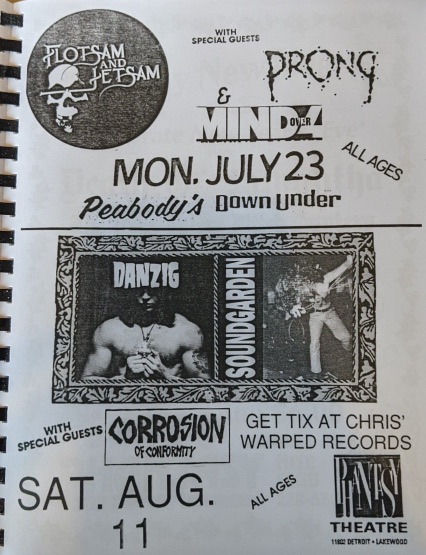 FLOTSAM
AND
JETSAM
WITH
SPECIAL GUESTS
PRONG
&
MIND OVER 4
ALL AGES
MON. JULY 23
Peabody's Down Under
DANZIG
SOUNDGARDEN
WITH
SPECIAL GUESTS
CORROSION
OF CONFORMITY
GET TIX AT CHRIS'
WARPED RECORDS
SAT. AUG.
11
ALL AGES
PHANTASY
THEATRE
11802 DETROIT • LAKEWOOD